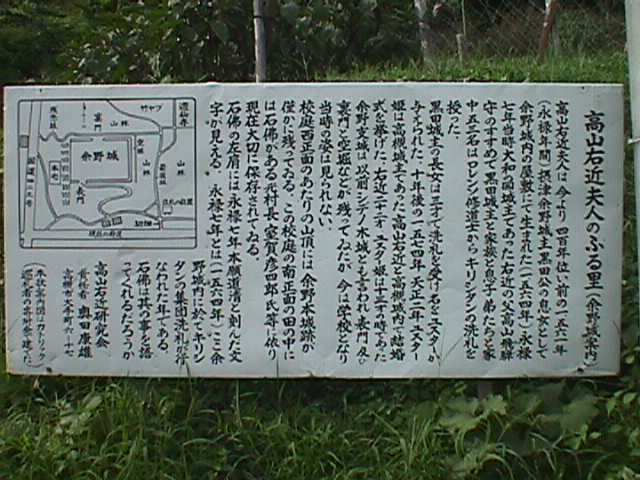 高山右近夫人のふる里(余野城案内)
高山右近夫人は今より四百年位い前の一五六一年
(永禄年間)摂津余野城主黒田公の息女として
余野城内の屋敷にて生まれた(一五六四年)永禄
七年当時大和沢城主であった右近の父高山飛騨
守のすすめで黒田城主と家族と息子弟たちと家
中五三名はロレンソ修道士からキリシタンの洗礼を
授った。
黒田城主の長女は三才で洗礼を受け名をユスタかが
与えられた。十年後の一五七四年天正二年ユスタ
姫は高槻城主であった高山右近と高槻城内で結婚
式を挙げた。右近二十一才ユスタ姫は十三才の時であった
余野支城は以前シデノ木城とも言われ表門及び
裏門と空堀などが残ってゐたが今は学校となり
当時の姿は見られない。
校庭西正面のあたりの山頂には余野本城跡が
僅かに残ってゐる。この校庭の南正面の田の中に
は石佛がある元村長室賀彦四郎氏等に依り
現在大切に保存されてゐる。
石佛の左肩には永禄七年本願道清と刻んだ文
字が見える。永禄七年とは(一五六四年)ここ余
野城内に於てキリシ
タンの集団洗礼が行
なわれた年である。
石佛は其の事を語っ
てくれるだろうか
高山右近研究会
奥田康雄
高槻市
余野城
裏門
山林
竹ヤブ
表門
空堀
山林
山林